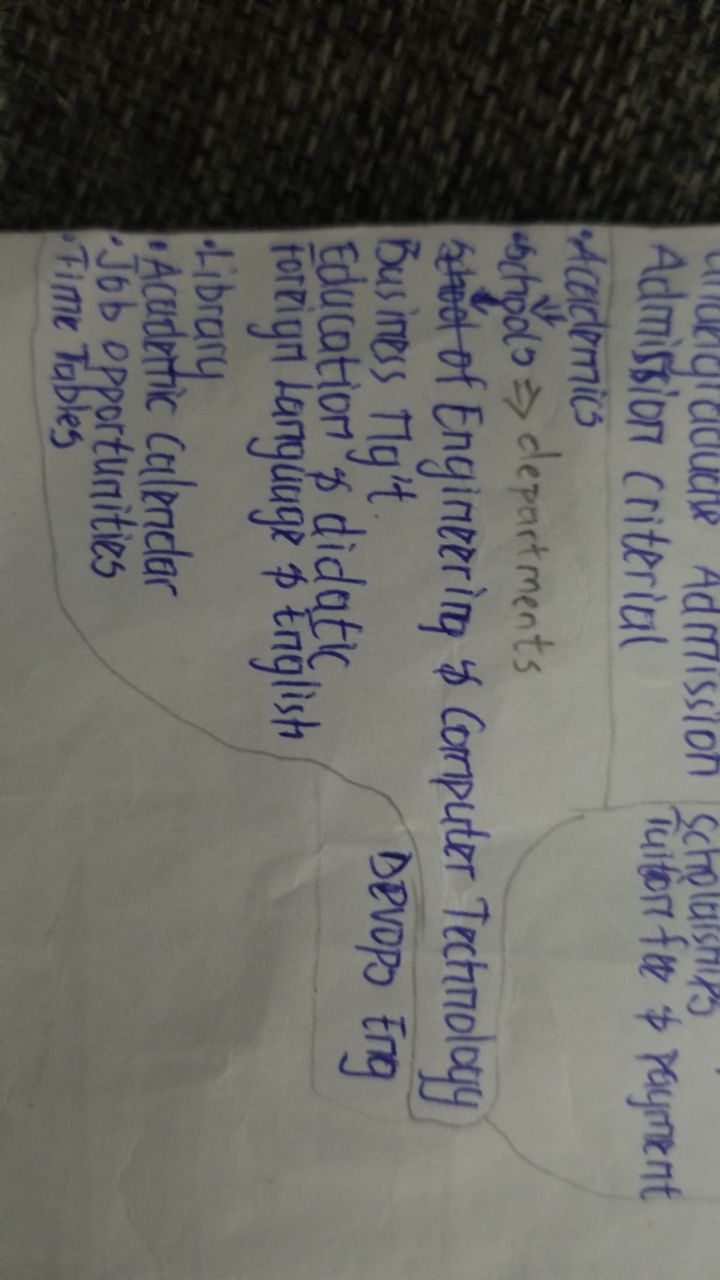 Undergraduate Admission
Scholarships
Admission criterial
Tuition fee & Payment
• Academics
• Schools ⇒ departments
School of Engineering & Computer Technology
Business Mg't.
Devops Eng
Education & didatic
Foreign Language & English
• Library
• Academic Calendar
• Job opportunities
• Time Tables